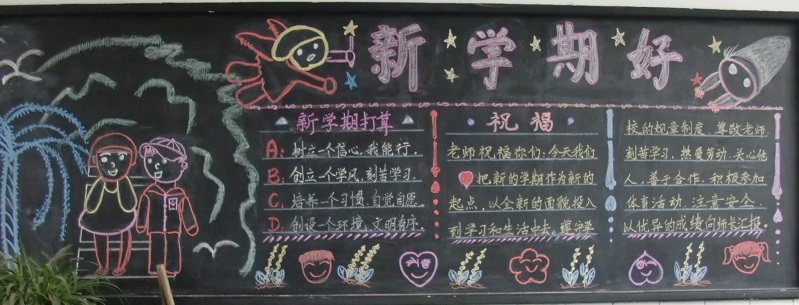 新学期好
新学期打算
A: 树立一个信心,我能行.
B: 创立一个学风,刻苦学习.
C: 培养一个习惯,自觉自愿.
D: 创设一个环境,文明有序.
祝福
老师祝福你们:今天我们
把新的学期作为新的
起点,以全新的面貌投入
到学习和生活中去。遵守学
校的规章制度、尊敬老师、
刻苦学习、热爱劳动、关心他
人、善于合作、积极参加
体育活动、注意安全
以优异的成绩向师长汇报